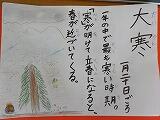 大寒
一月二十日ごろ
一年の中で最も寒い時期。
「寒」が明けて立春になると、
春が近づいてくる。